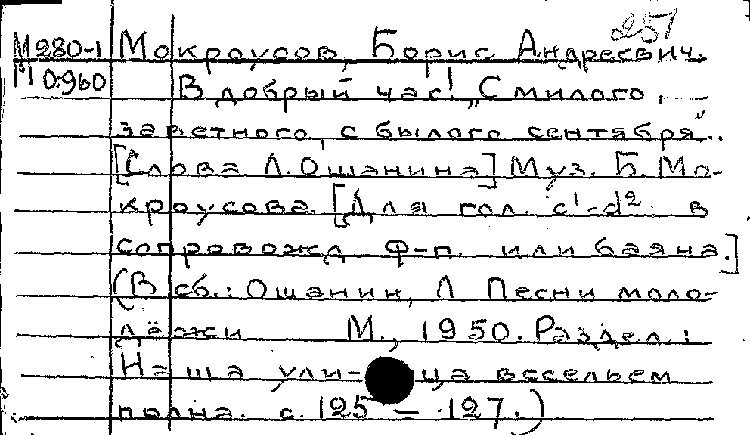 251
М280-1 Мокроусов, Борис Андреевич.
М0960 В добрый час! „С милого,
заветного, с былого сентября"..
[Слова Л. Ошанина] Муз. Б. Мо-
кроусова. [Для гол. c¹-d² в
сопровожд. ф-п. или баяна.]
(В сб.: Ошанин, Л. Песни моло-
дёжи М., 1950. Раздел.:
Наша ули-ца весельем
полна. с. 125 – 127.)